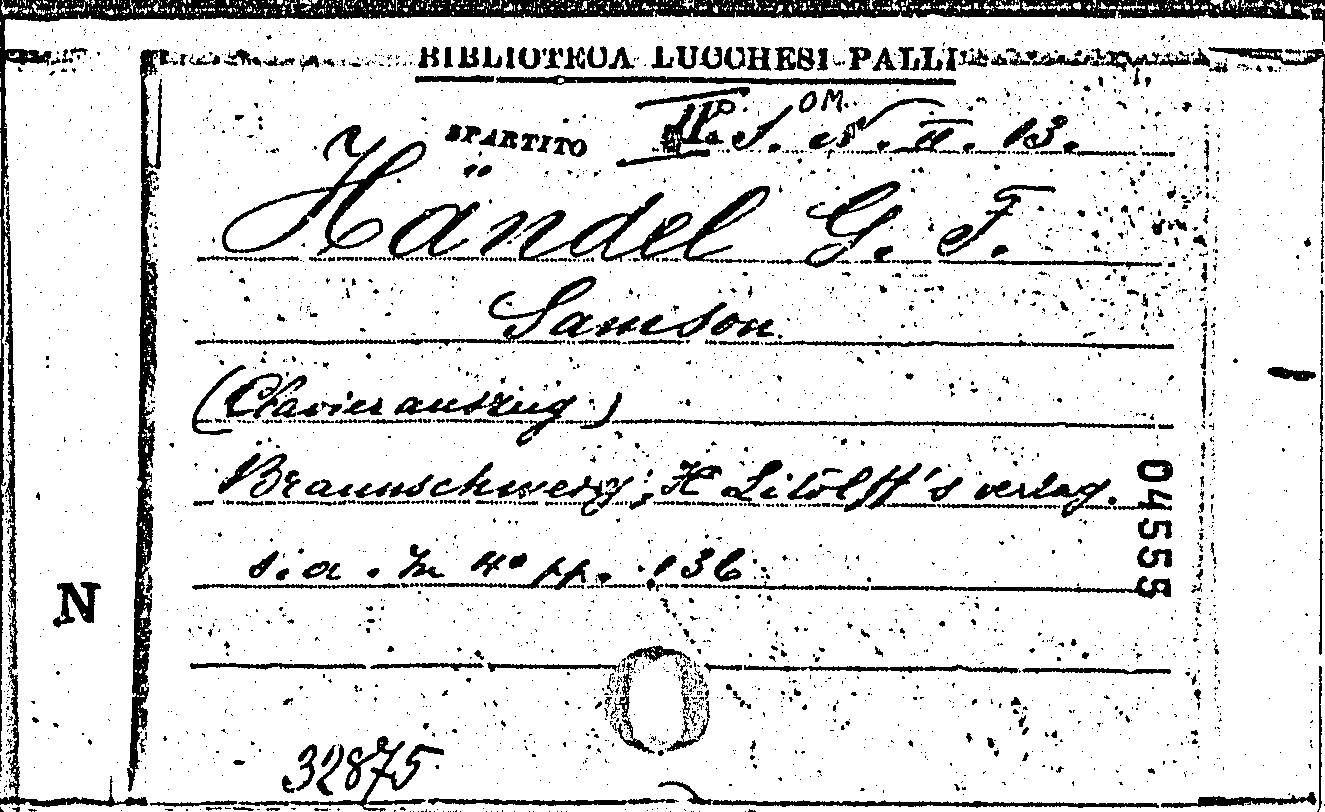 BIBLIOTECA LUCCHESI PALLI
OM.
SPARTITO
S. N. II. 13.
Händel G. F.
Samson
(Clavierauszug)
Braunschweig; H Litolff's verlag.
s. a. In 4° pp. 136
04555
N
32875